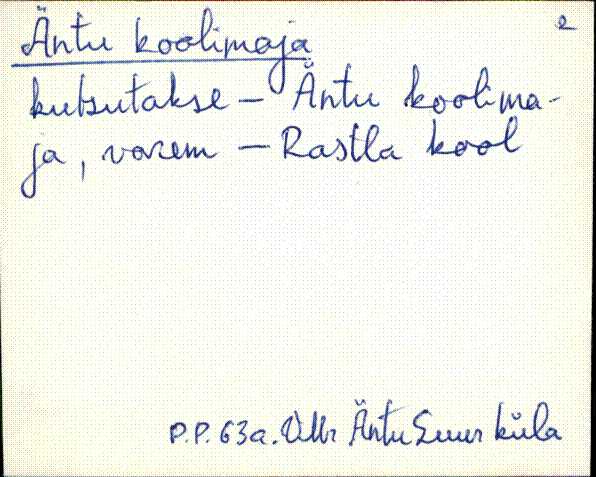 Äntu koolimaja 2
kutsutakse – Äntu koolima-
ja, varem – Rastla kool
P.P. 63a. VMr Äntu Suurküla